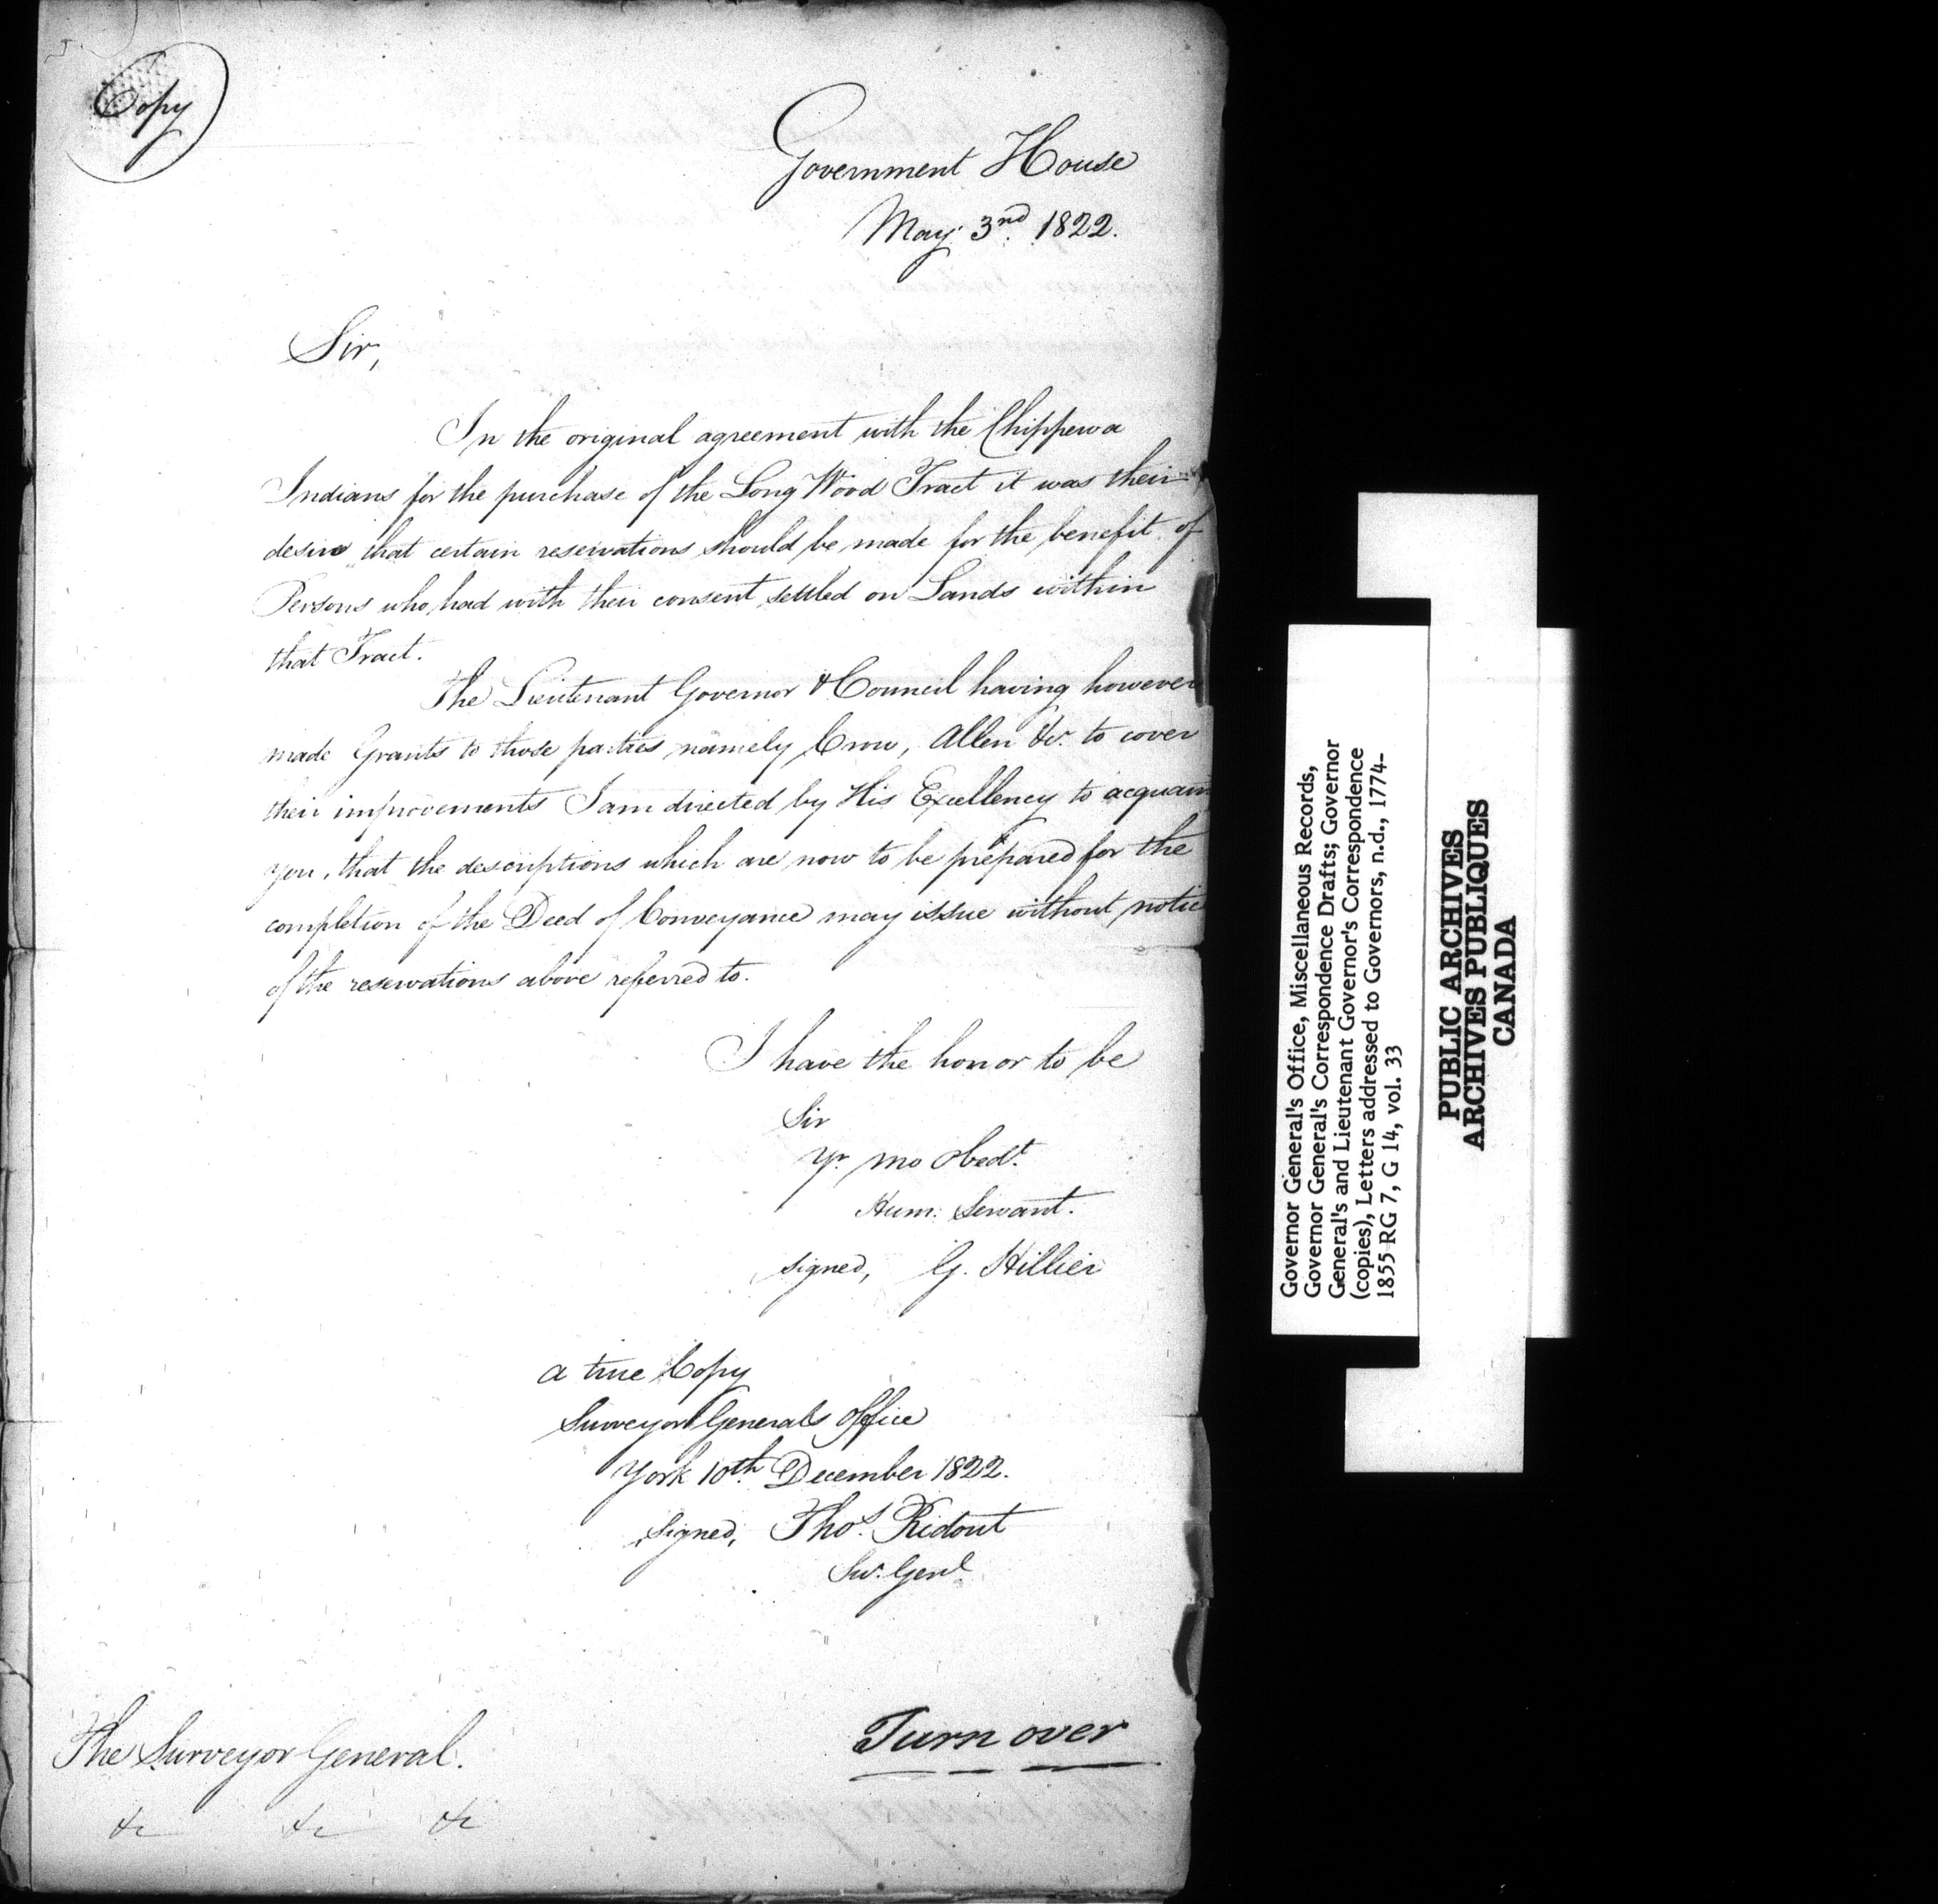 Copy
Government House
May 3rd. 1822.
Sir,
In the original agreement with the Chippewa
Indians for the purchase of the Long Wood Tract it was their
desire that certain reservations should be made for the benefit of
Persons who, had with their consent, settled on Lands within
that Tract.
The Lieutenant Governor & Council having however
made Grants to those parties namely Crow, Allen &c. to cover
their improvements I am directed by His Excellency to acquain
you, that the descriptions which are now to be prepared for the
completion of the Deed of Conveyance may issue without notice
of the reservations above referred to.
I have the honor to be
Sir
Yr. mo Obedt.
Hum: Servant.
signed, G. Hillier
a true Copy
Surveyor Generals Office
York 10th. December 1822.
signed, Thos. Ridout
Sur. Genl.
The Surveyor General.
&c &c &c
Turn over
Governor General's Office, Miscellaneous Records,
Governor General's Correspondence Drafts; Governor
General's and Lieutenant Governor's Correspondence
(copies), Letters addressed to Governors, n.d., 1774-
1855 RG 7, G 14, vol. 33
PUBLIC ARCHIVES
ARCHIVES PUBLIQUES
CANADA